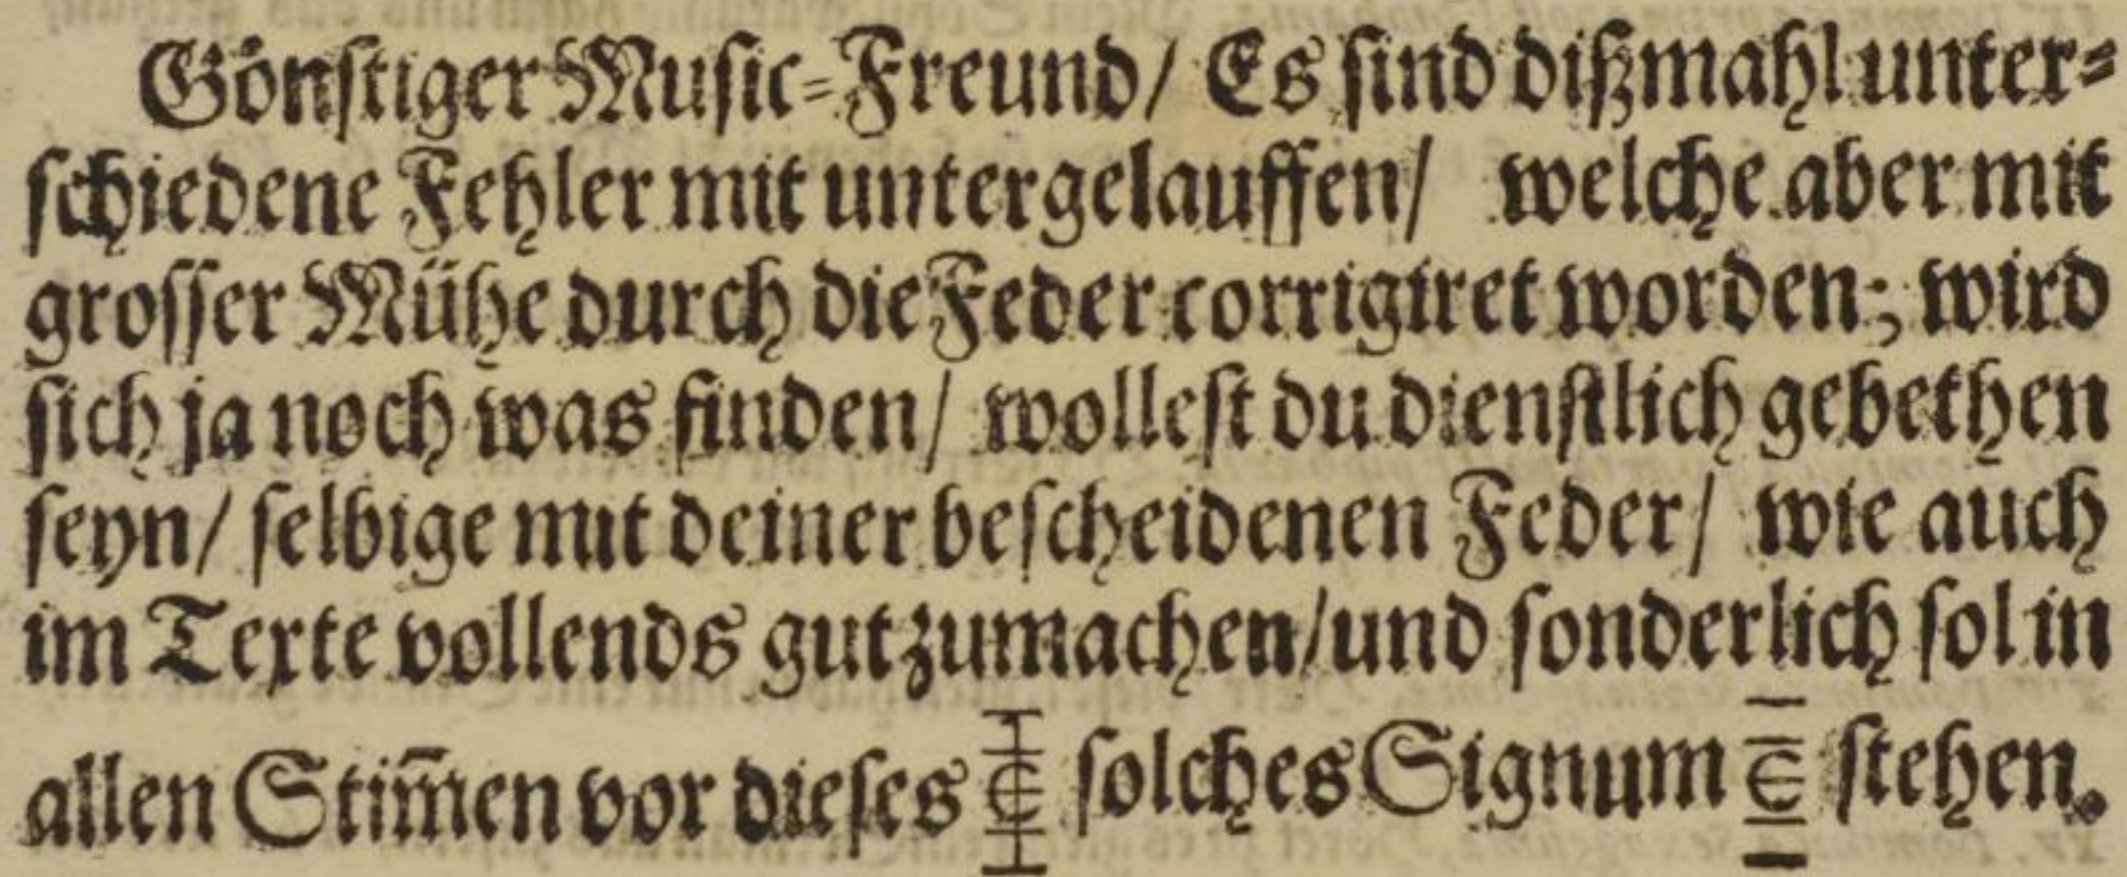 Gönſtiger Muſic-Freund/ Es ſind dißmahl unter-
ſchiedene Fehler mit untergelauffen/ welche aber mit
groſſer Mühe durch die Feder corrigiret worden; wird
ſich ja noch was finden/ wolleſt du dienſtlich gebethen
ſeyn/ ſelbige mit deiner beſcheidenen Feder/ wie auch
im Texte vollends gutzumachen/und ſonderlich ſol in
allen Stim̄en vor dieſes 𝄵 ſolches Signum 𝄴 ſtehen.